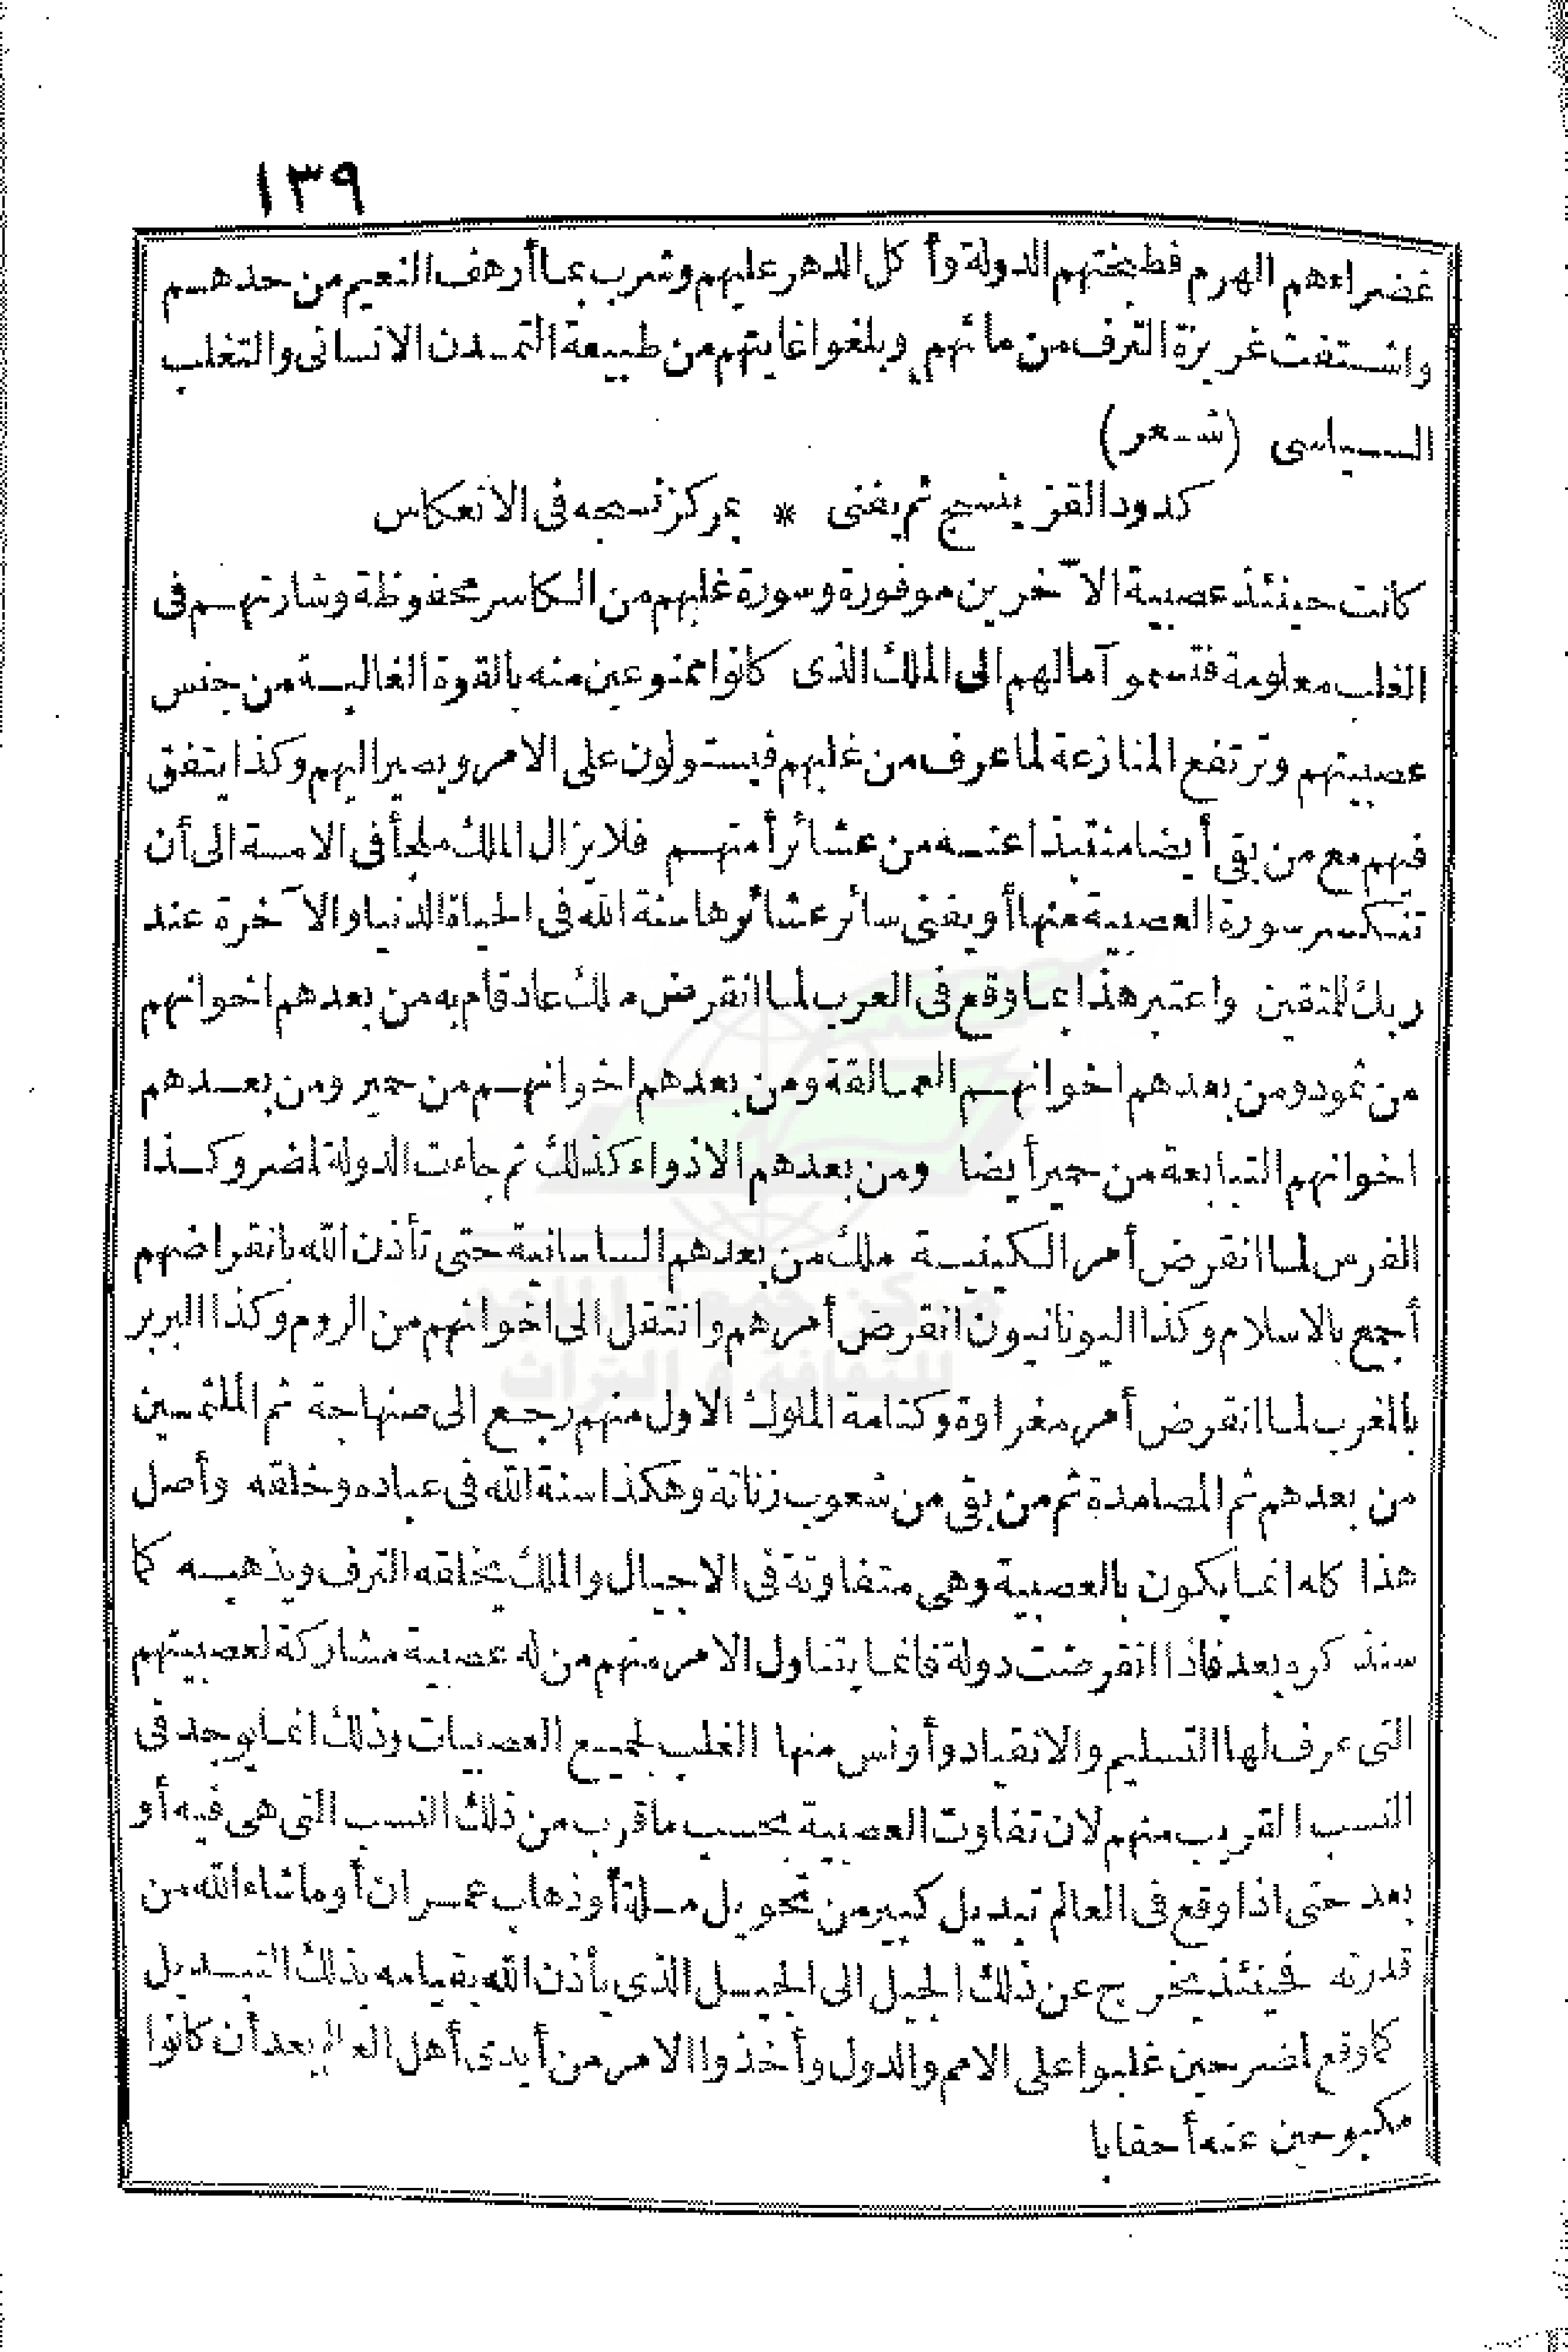 ١٣٩
غضراءهم الهرم فطبختهم الدولة وأ كل الدهر عليهم وشرب بما أرهف النعيم من حدهم
واشتفت غريزة الترف من مائهم وبلغوا غايتهم من طبيعة التمدن الانسانى والتغلب
السياسى (شعر)
كدود القز ينسج ثم يفنى * بمركز نسجه فى الانعكاس
كانت حينئذ عصبية الآخرين موفورة وسورة غلبهم من الكاسر محفوظة وشارتهم فى
الغلب معلومة فتسمو آمالهم الى الملك الذى كانوا ممنوعين منه بالقوة الغالبة من جنس
عصبيتهم وترتفع المنازعة لما عرف من غلبهم فيستولون على الامر ويصير اليهم وكذا يتفق
فيهم مع من بقى أيضا منتبذا عنه من عشائر أمتهم فلا يزال الملك ملجأ فى الامة الى أن
تنكسر سورة العصبية منها أو يفنى سائر عشائرها سنة الله فى الحياة الدنيا والآخرة عند
ربك للمتقين واعتبر هذا بما وقع فى العرب لما انقرض ملك عاد قام به من بعدهم اخوانهم
من ثمود ومن بعدهم اخوانهم العمالقة ومن بعدهم اخوانهم من حمير ومن بعدهم
اخوانهم التبابعة من حمير أيضا ومن بعدهم الاذواء كذلك ثم جاءت الدولة لمضر وكذا
الفرس لما انقرض أمر الكينية ملك من بعدهم الساسانية حتى تأذن الله بانقراضهم
أجمع بالاسلام وكذا اليونانيون انقرض أمرهم وانتقل الى اخوانهم من الروم وكذا البربر
بالمغرب لما انقرض أمر مغراوة وكتامة الملوك الاول منهم رجع الى صنهاجة ثم الملثمين
من بعدهم ثم المصامدة ثم من بقى من شعوب زناتة وهكذا سنة الله فى عباده وخلقه وأصل
هذا كله انما يكون بالعصبية وهى متفاوتة فى الاجيال والملك يخلقه الترف ويذهبه كما
سنذكره بعد فاذا انقرضت دولة فانما يتناول الامر منهم من له عصبية مشاركة لعصبيتهم
التى عرف لها التسليم والانقياد وأونس منها الغلب لجميع العصبيات وذلك انما يوجد فى
النسب القريب منهم لان تفاوت العصبية بحسب ما قرب من ذلك النسب التى هى فيه أو
بعد حتى اذا وقع فى العالم تبديل كبير من تحويل ملة أو ذهاب عمران أو ما شاء الله من
قدرته فحينئذ يخرج عن ذلك الجيل الى الجيل الذى يأذن الله بقيامه بذلك التبديل
كما وقع لمضر حين غلبوا على الامم والدول وأخذوا الامر من أيدى أهل العالم بعد أن كانوا
مكبوحين عنه أحقابا
مركز جمعة الماجد
للثقافة و التراث